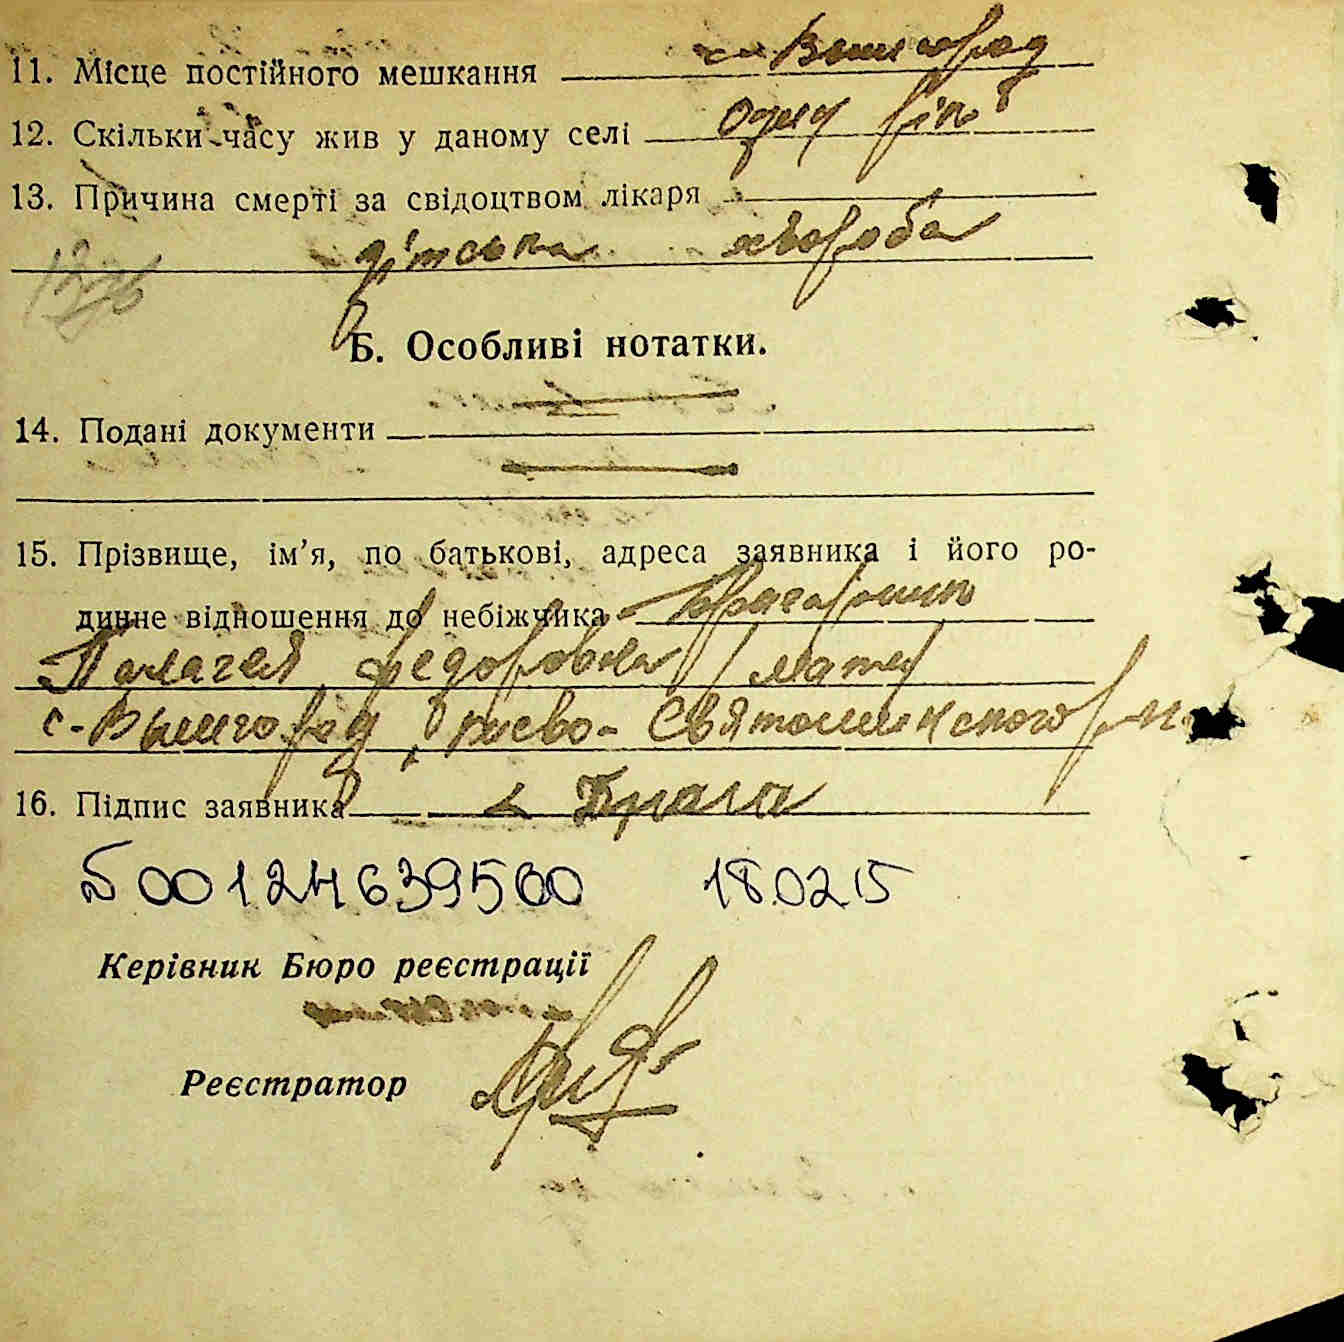 11. Місце постійного мешкання с. Вишгород
12. Скільки часу жив у даному селі один рік
13. Причина смерті за свідоцтвом лікаря
дітська хвороба
Б. Особливі нотатки.
14. Подані документи
15. Прізвище, ім’я, по батькові, адреса заявника і його ро-
динне відношення до небіжчика
Палагея Федоровна мати
с. Вышгород, Киево-Святошинского р-н
16. Підпис заявника
Б 00124639560 18.02.15
Керівник Бюро реєстрації
Реєстратор